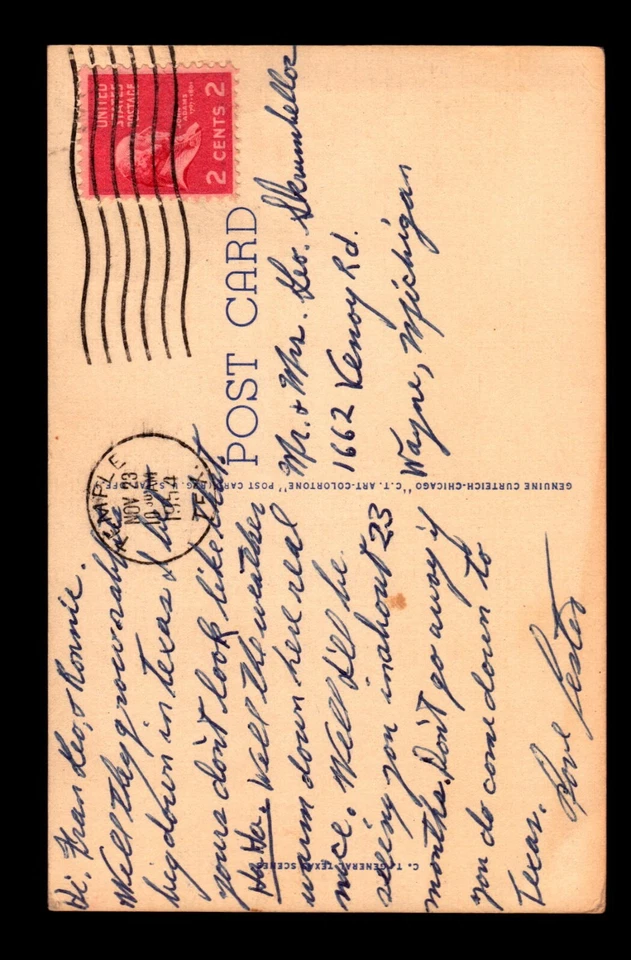 Hi. Fran, Leo, & Ronnie.
Well they grow rabbits
big down in texas & I bet
yours don't look like that.
Ha Ha. Well the weather
warm down here real
nice. Well I'll be
seeing you in about 23
months. Don't go away if
you do come down to
Texas.
Love Lester
C. T. GENERAL TEXAS SCENES
GENUINE CURTEICH-CHICAGO "C. T. ART-COLORTONE" POST CARD (REG. U. S. PAT. OFF.)
TEMPLE
NOV 23
1954
TEX.
UNITED
STATES
POSTAGE
JOHN
ADAMS
2 CENTS 2
POST CARD
Mr. & Mrs. Leo.
1662 Venoy Rd.
Wayne, Michigan